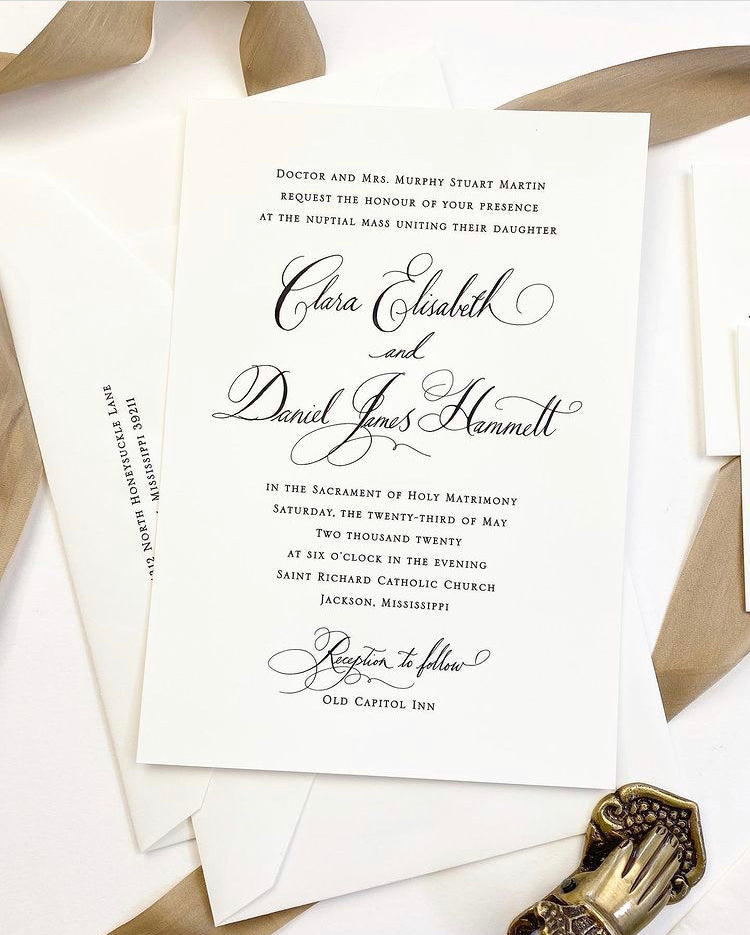 Doctor and Mrs. Murphy Stuart Martin
request the honour of your presence
at the nuptial mass uniting their daughter
Clara Elisabeth
and
Daniel James Hammett
in the Sacrament of Holy Matrimony
Saturday, the twenty-third of May
Two thousand twenty
at six o'clock in the evening
Saint Richard Catholic Church
Jackson, Mississippi
Reception to follow
Old Capitol Inn
North Honeysuckle Lane
Mississippi 39211